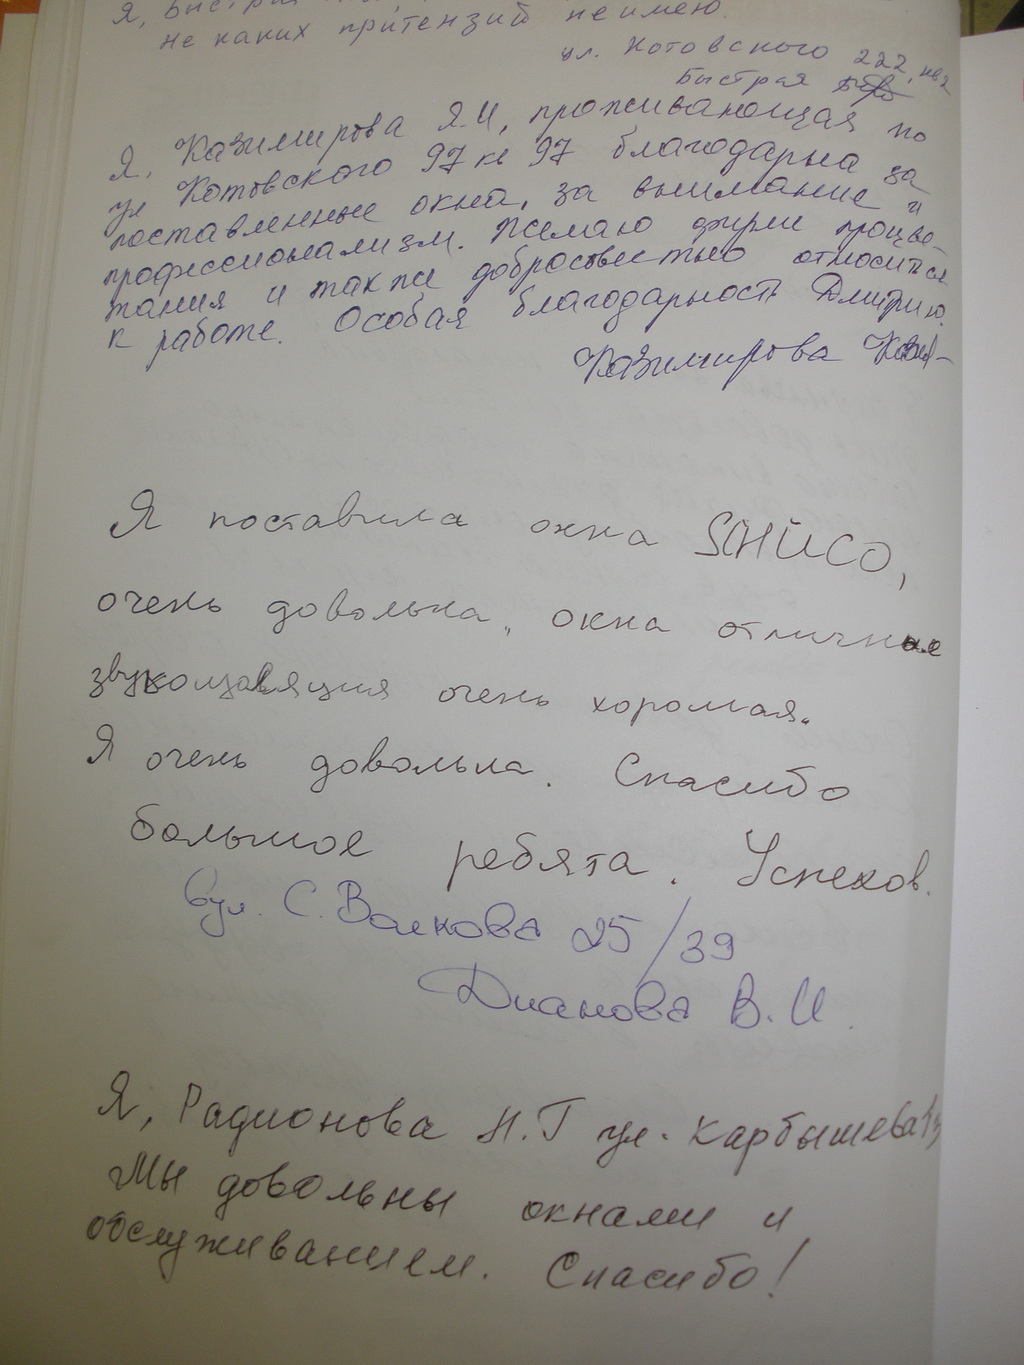 Я, Быстрая
не каких притензий неимею.
ул. Котовского 222, кв2
Быстрая
Я, Казимирова Я.И, проживающая по
ул Котовского 97 кв 97 благодарна за
поставленные окна, за внимание и
профессионализм. Желаю фирме процве-
тания и также добросовестно относится
к работе. Особая благодарность Дмитрию.
Казимирова
Я поставила окна SCHÜCO,
очень довольна, окна отличные
звукоизоляция очень хорошая.
Я очень довольна. Спасибо
большое ребята. Успехов.
вул. С. Волкова 25/39
Дианова В.И.
Я, Радионова Н.Г ул. Карбышева
Мы довольны окнами и
обслуживанием. Спасибо!